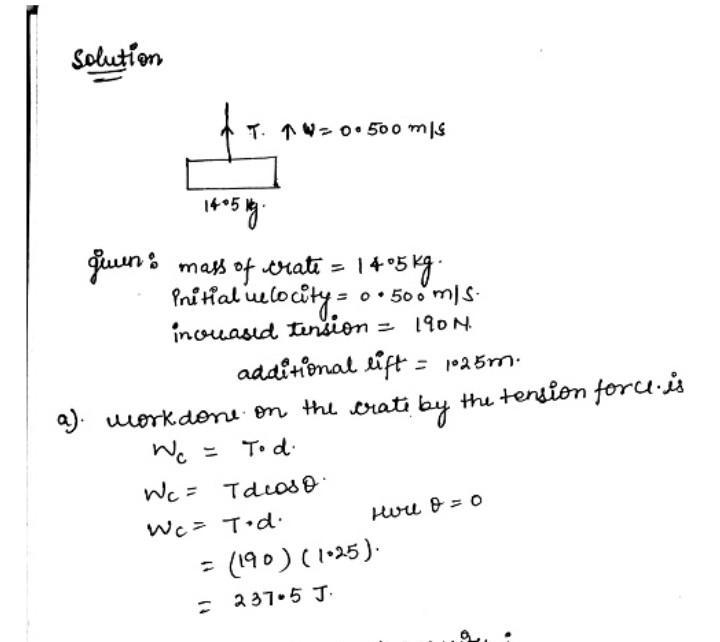 Solution
T. ↑ V = 0.500 m/s
14.5 kg.
given: mass of crate = 14.5 kg.
Initial velocity = 0.500 m/s.
increased tension = 190 N.
additional lift = 1.25m.
a). workdone on the crate by the tension force. is
Wc = T.d.
Wc = Tdcosθ.
Wc = T.d. Here θ = 0
= (190) (1.25).
= 237.5 J.